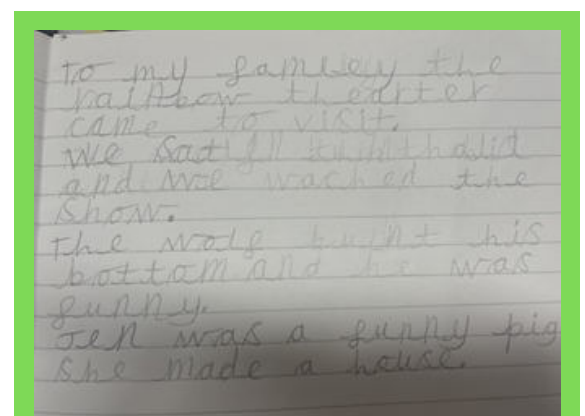 To my familey the
rainbow thearter
came to visit.
We sat in the hall
and we wached the
show.
The wolf burnt his
bottom and he was
funny.
Jen was a funny pig
she made a house.